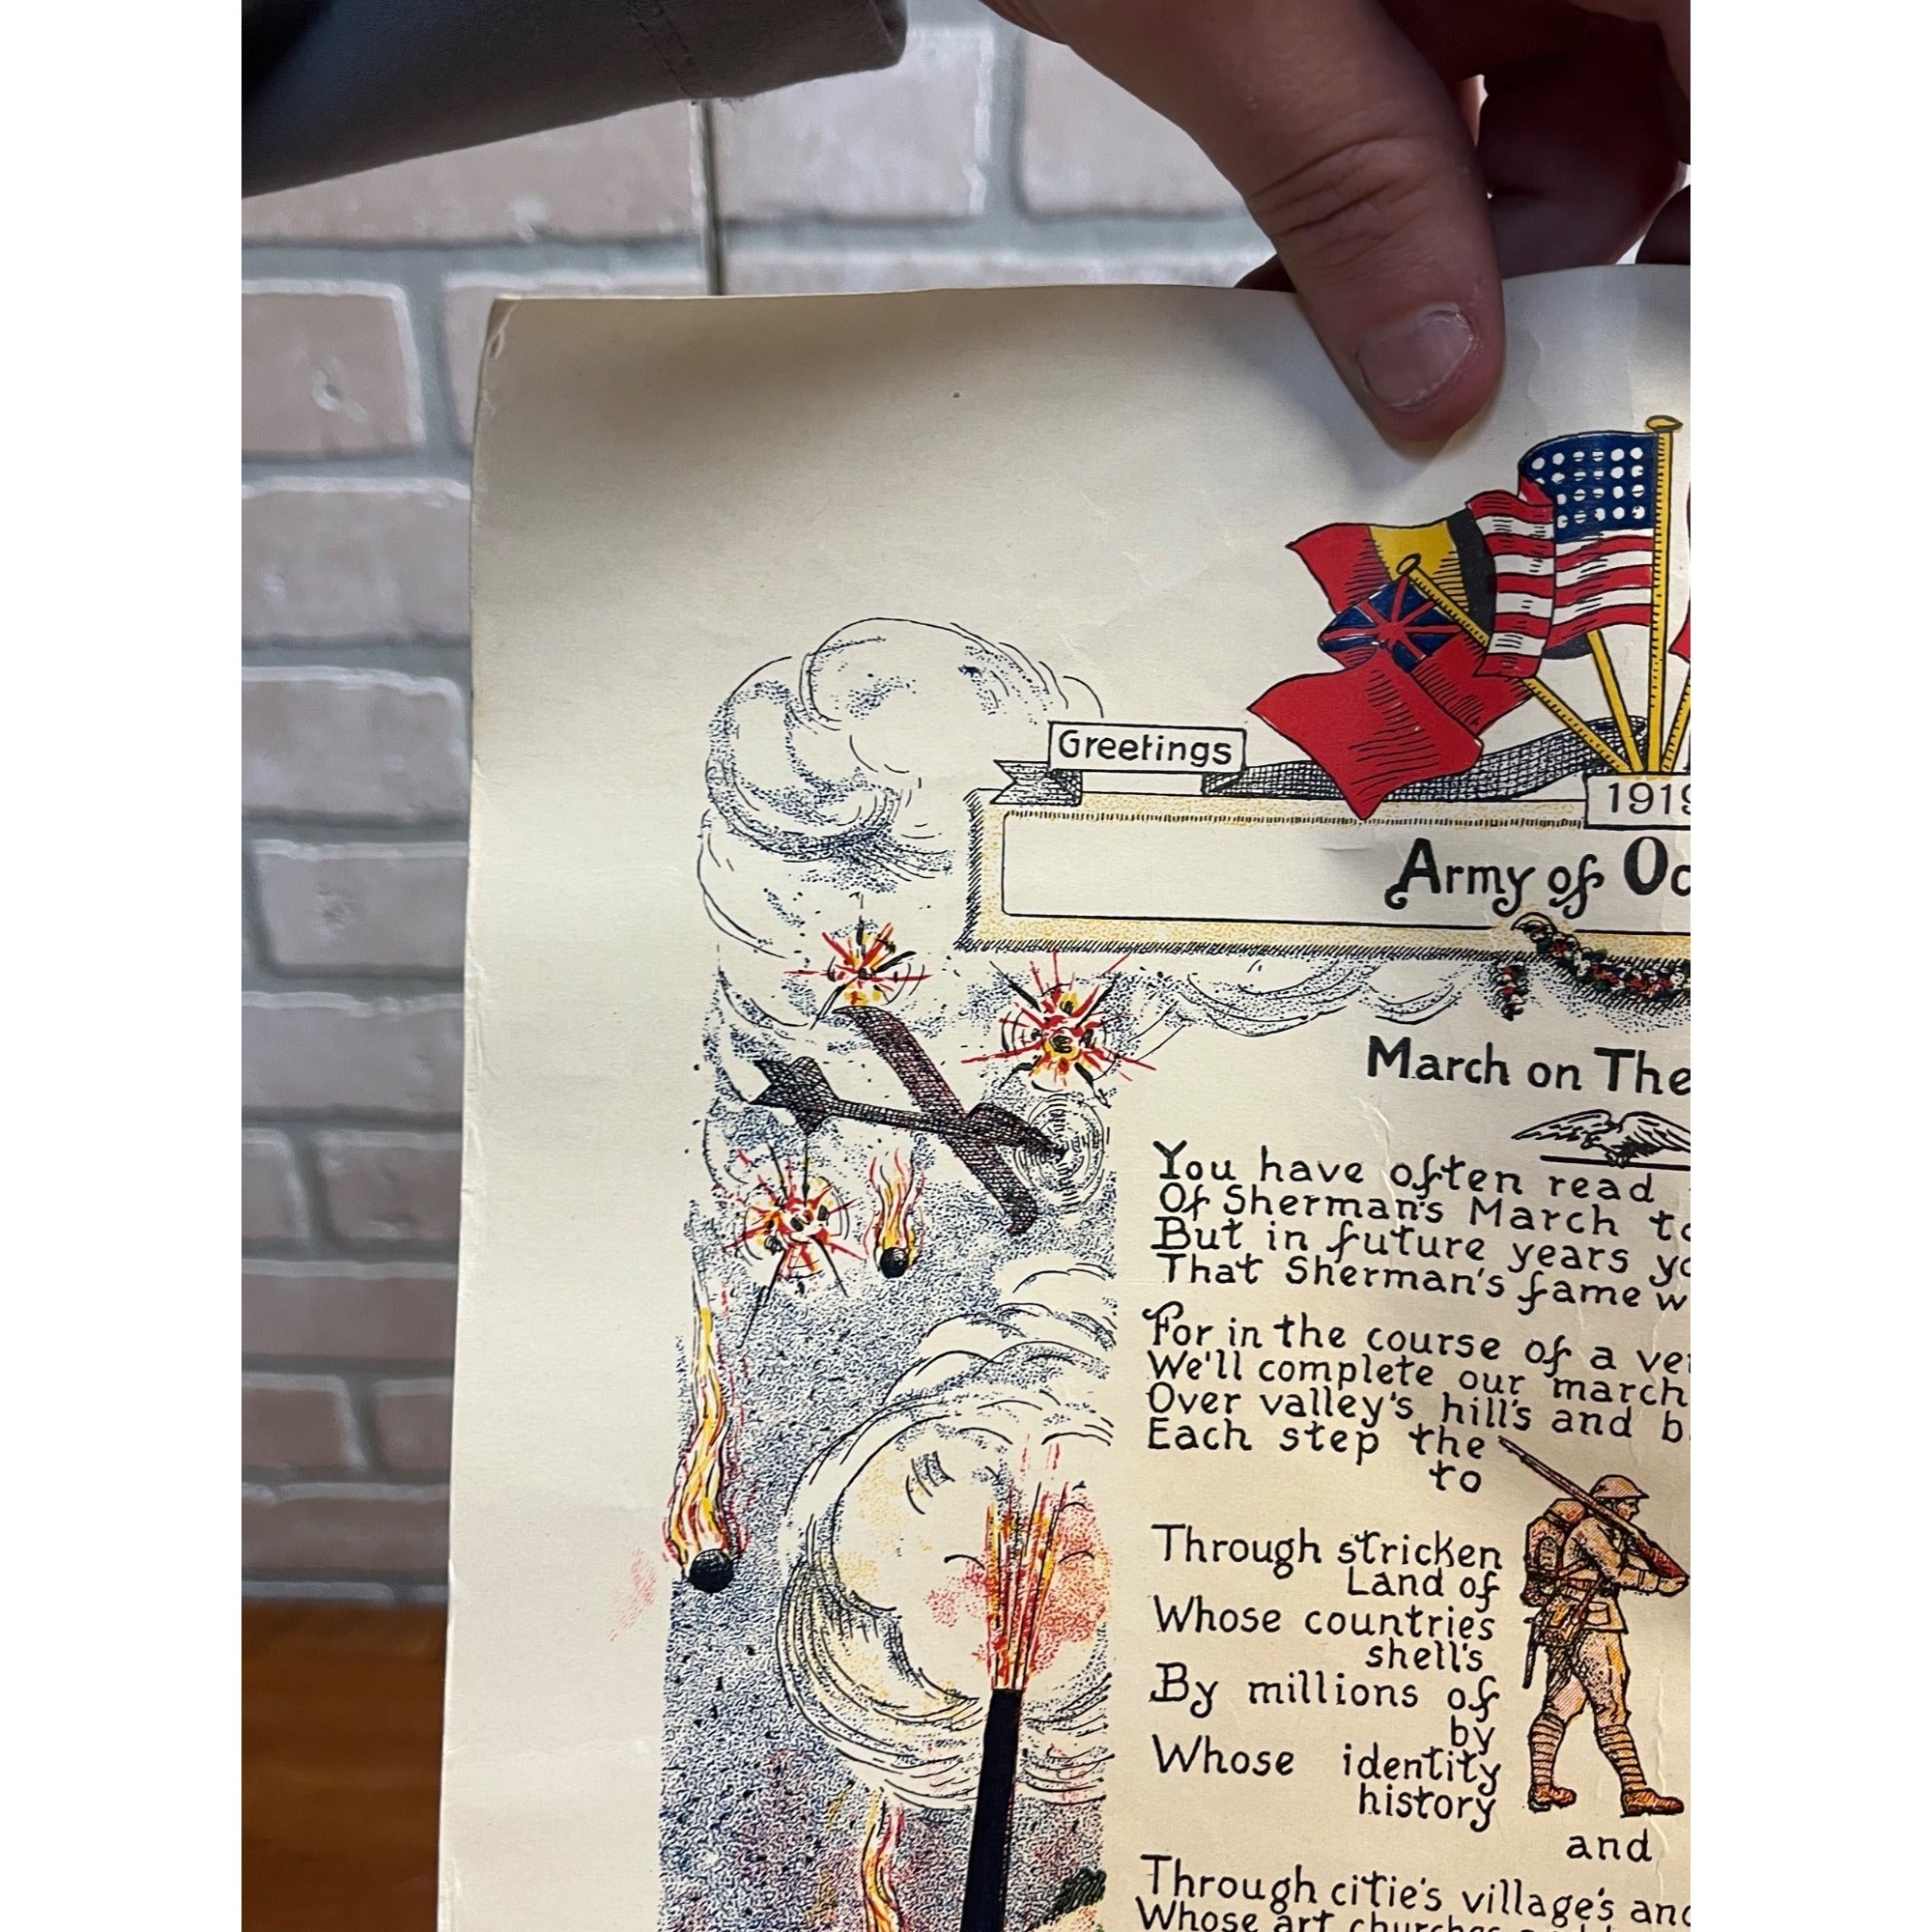 Greetings
1919
Army of Oc
March on The
You have often read
Of Sherman's March to
But in future years yo
That Sherman's fame w
For in the course of a ve
We'll complete our march
Over valley's hill's and b
Each step the
to
Through stricken
Land of
Whose countries
shell's
By millions of
by
Whose identity
history
and
Through citie's village's and
Whose art churches